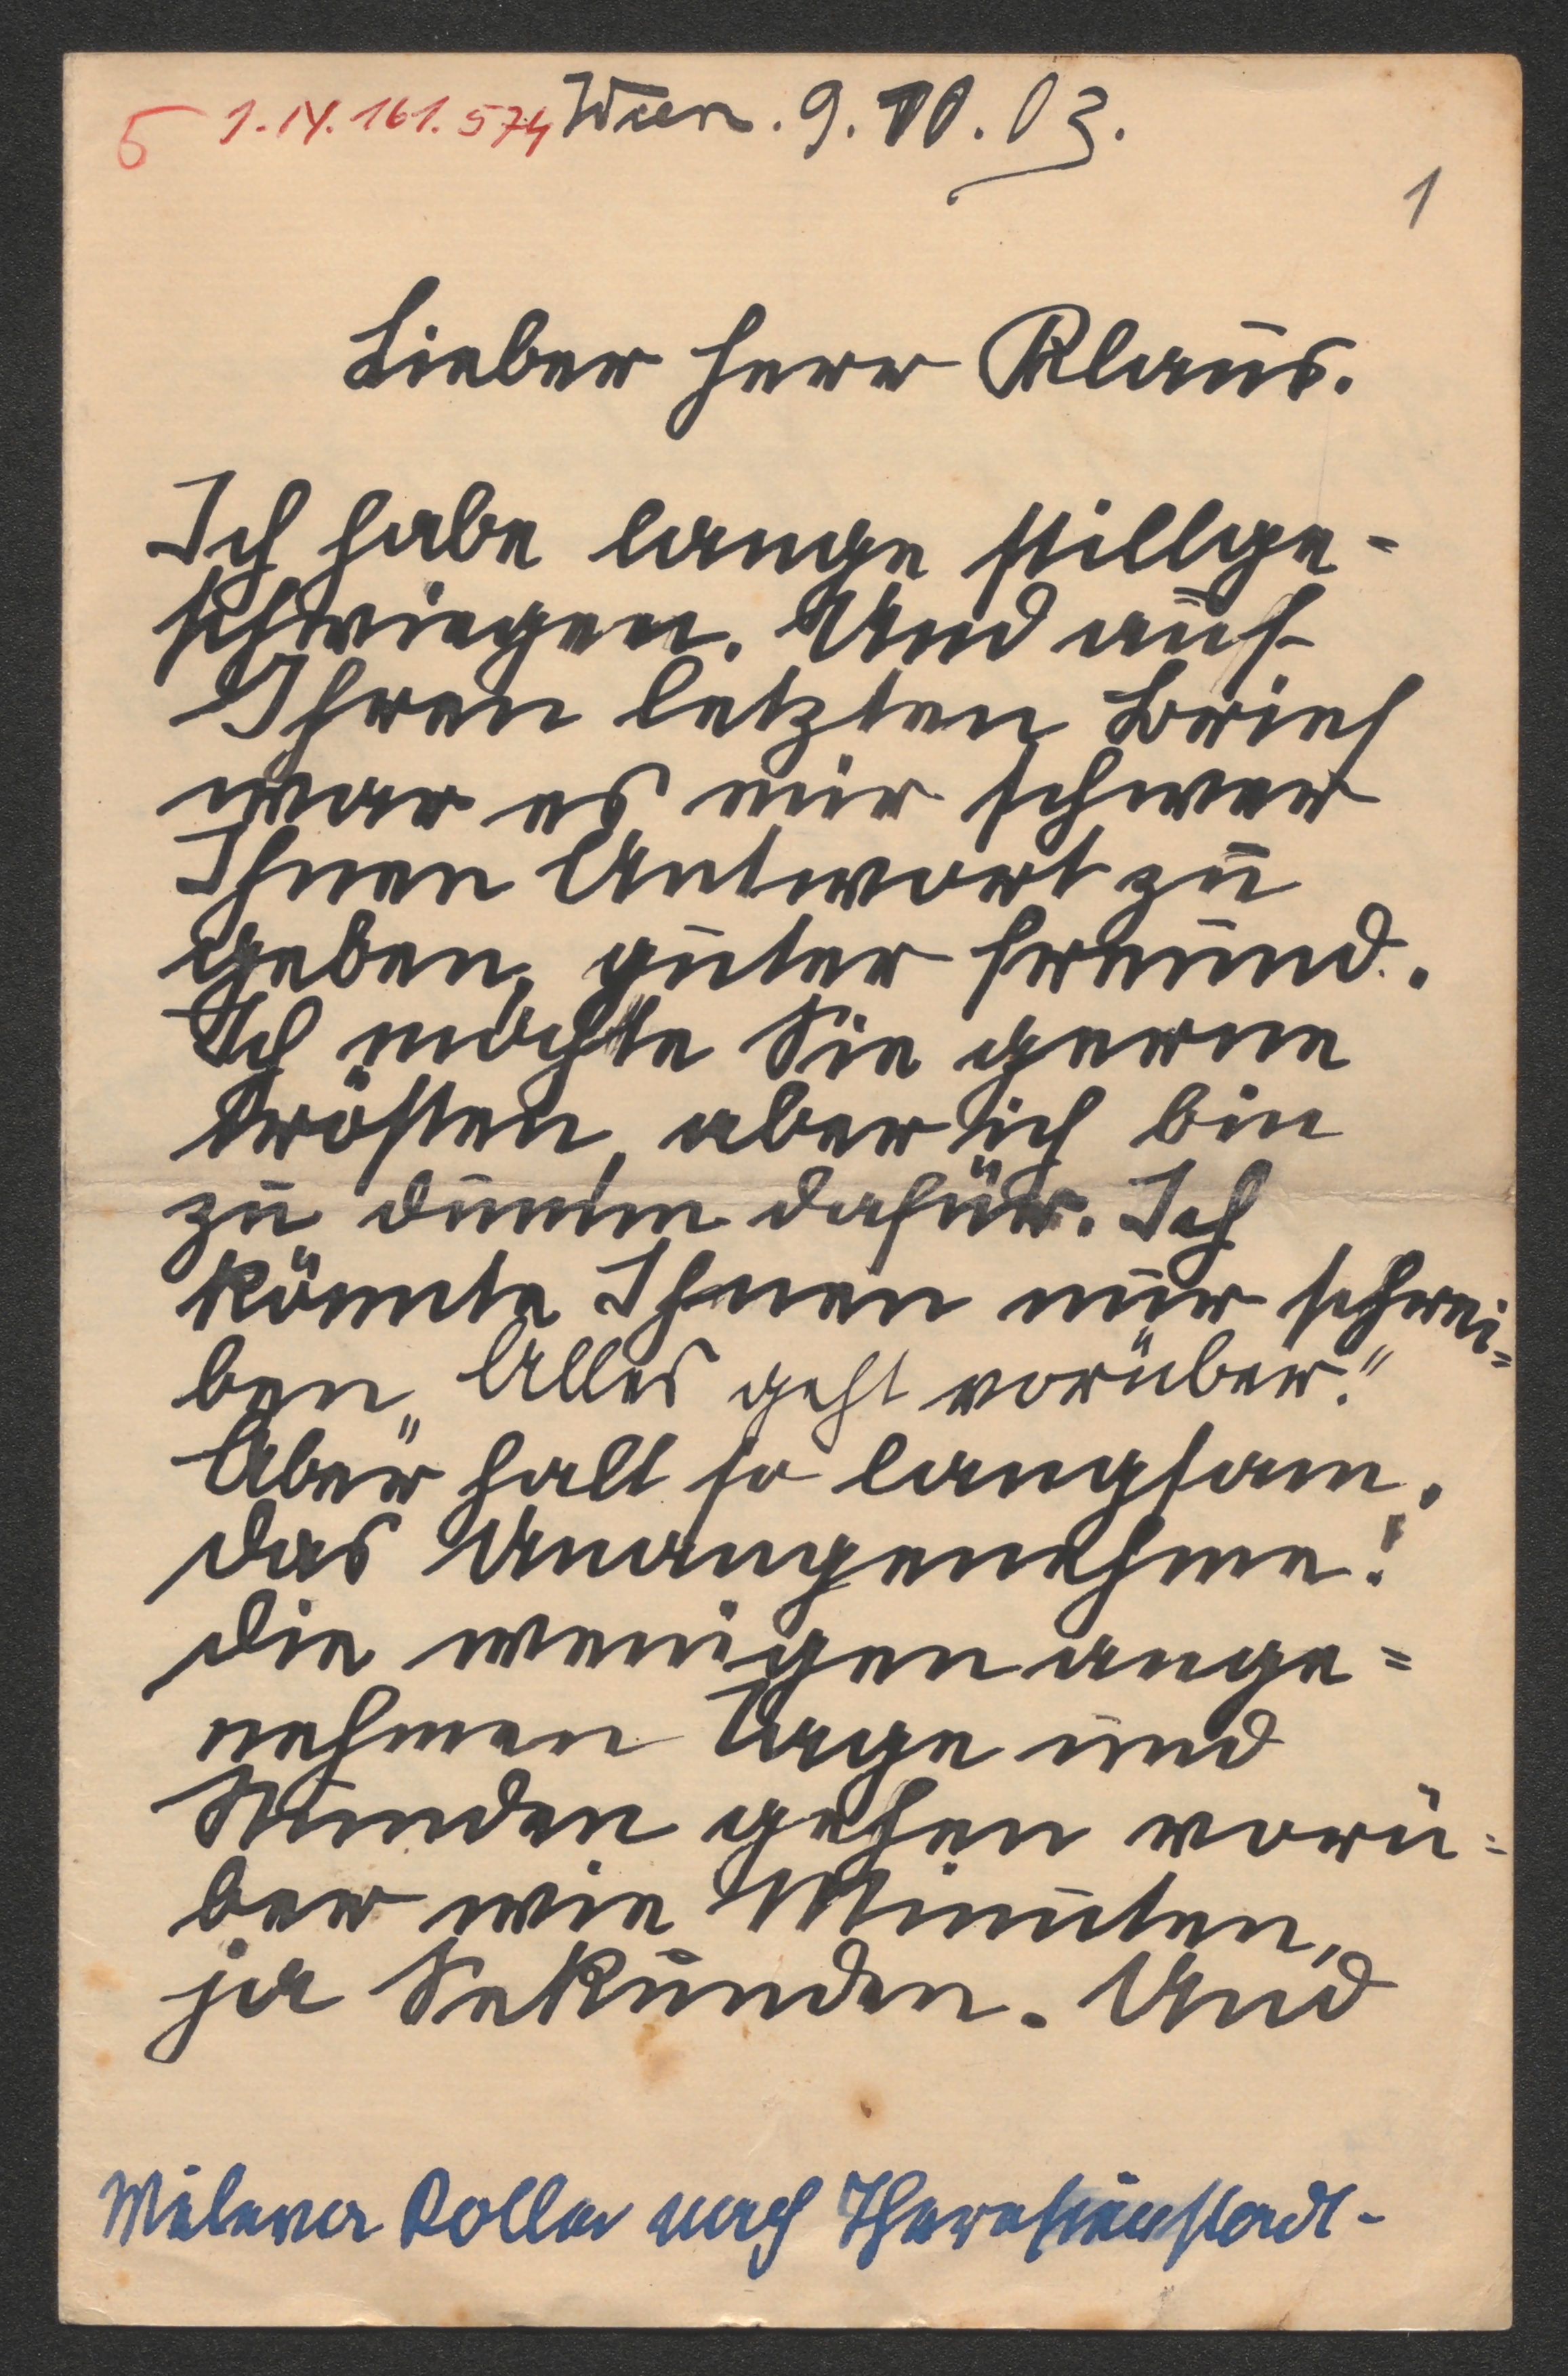 5 1.IV.161.574 Wien. 9. 10. 03.
1
Lieber Herr Klaus.
Ich habe lange stillge-
schwiegen. Und auf
Ihren letzten Brief
war es mir schwer
Ihnen Antwort zu
geben, guter Freund.
Ich möchte Sie gerne
trösten, aber ich bin
zu dumm dafür. Ich
könnte Ihnen nur schrei=
ben „Alles geht vorüber."
Aber halt so langsam,
das Unangenehme!
Die wenigen ange=
nehmen Tage und
Stunden gehen vorü=
ber wie Minuten,
ja Sekunden. Und
Milena Roller nach Theresienstadt-